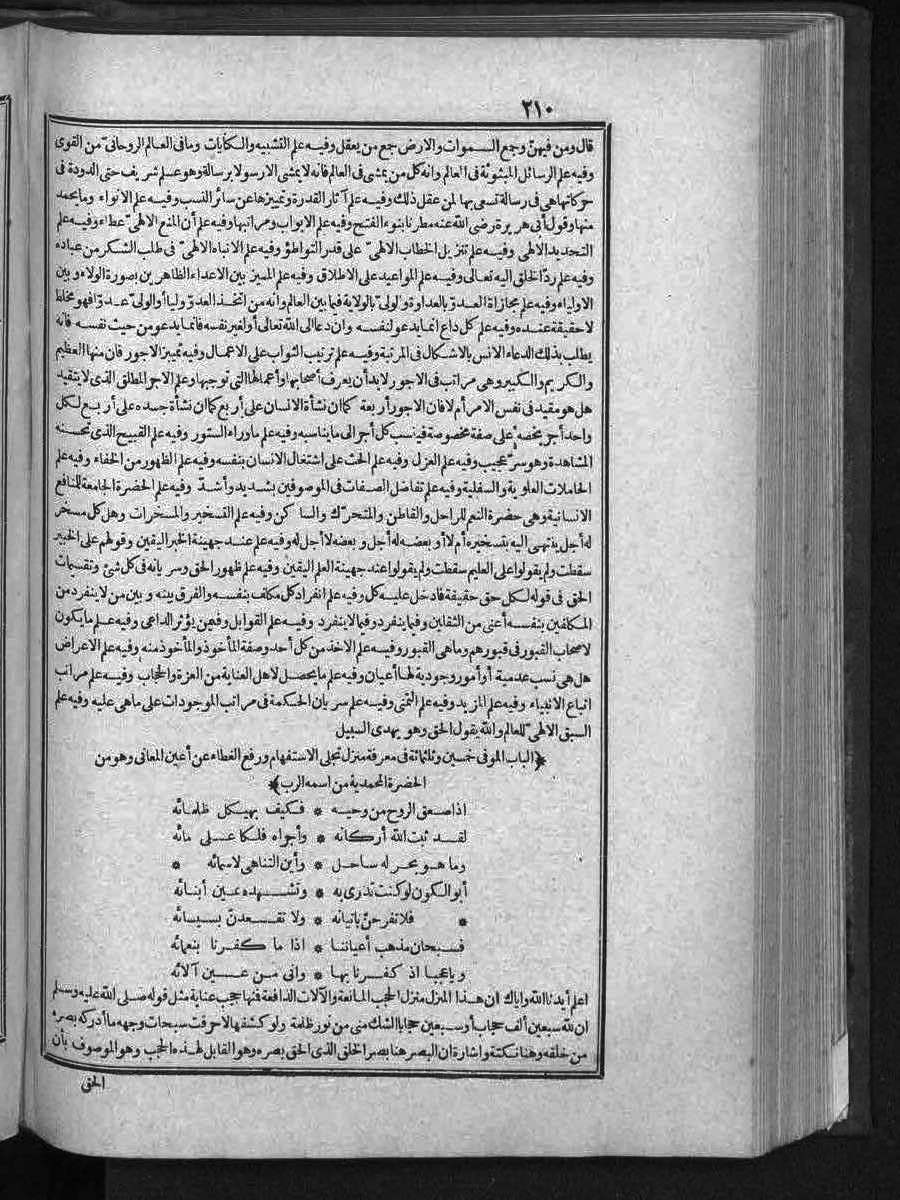 ٢١٠
قال ومن فيهنّ وجمع السموات والارض جمع من يعقل وفيه علم التشبيه والكنايات وما فى العالم الروحانىّ من القوى
وفيه علم الرسائل المبثوثة فى العالم وانه كل من يمشى فى العالم فانه لا يمشى الا رسولا برسالة وهو علم شريف حتى الدودة فى
حركاتها هى فى رسالة تسعى بها لمن عقل ذلك وفيه علم آثار القدرة وتمييزها عن سائر النسب وفيه علم الانواء وما يحمد
منها وقول أبى هريرة رضى الله عنه مطرنا بنوء الفتح وفيه علم الابواب ومراتبها وفيه علم أن المنع الالهىّ عطاء وفيه علم
التحديد الالهى وفيه علم تنزيل الخطاب الالهىّ على قدر التواطؤ وفيه علم الانباه الالهىّ فى طلب الشكر من عباده
وفيه علم ردّ الخلق اليه تعالى وفيه علم المواعيد على الاطلاق وفيه علم المميز بين الاعداء الظاهرين بصورة الولاء وبين
الاولياء وفيه علم مجازاة العدوّ بالعداوة والولىّ بالولاية فيما بين العالم وانه من اتخذ العدوّ وليا أو الولىّ عدوّا فهو مخلط
لا حقيقة عنده وفيه علم كل داع انما يدعو لنفسه وان دعا الى الله تعالى أو لغير نفسه فانما يدعو من حيث نفسه فانه
يطلب بذلك الدعاء الانس بالاشكال فى المرتبة وفيه علم ترتيب الثواب على الاعمال وفيه تمييز الاجور فان منها العظيم
والكريم والكبير وهى مراتب فى الاجور لا بد أن يعرف أصحابها وأعمالها التى توجبها وعلم الاجر المطلق الذى لا يتقيد
هل هو مقيد فى نفس الامر أم لا فان الاجور أربعة كما ان نشأة الانسان على أربع كما ان نشأة جسده على أربع لكل
واحد أجر يخصه على صفة مخصوصة فينسب كل أجر الى ما يناسبه وفيه علم ما وراء الستور وفيه علم القبيح الذى تحسنه
المشاهدة وهو سرّ عجيب وفيه علم العزل وفيه علم الحث على اشتغال الانسان بنفسه وفيه علم الظهور من الخفاء وفيه علم
الحاملات العلوية والسفلية وفيه علم تفاضل الصفات فى الموصوفين بشديد وأشدّ وفيه علم الحضرة الجامعة للمنافع
الانسانية وهى حضرة النعم للراحل والقاطن والمتحرّك والساكن وفيه علم التسخير والمسخرات وهل كل مسخر
له أجل ينتهى اليه بتسخيره أم لا أو بعضه له أجل وبعضه لا أجل له وفيه علم عند جهينة الخبر اليقين وقولهم على الخبير
سقطت ولم يقولوا على العليم سقطت ولم يقولوا عند جهينة العلم اليقين وفيه علم ظهور الحق وسريانه فى كل شئ وتقسيمات
الحق فى قوله لكل حق حقيقة فادخل عليه كل وفيه علم انفراد كل مكلف بنفسه والفرق بينه وبين من لا ينفرد من
المكلفين بنفسه أعنى من الثقلين وفيما ينفرد وفيما لا ينفرد وفيه علم القوابل وفيمن يؤثر الداعى وفيه علم ما يكون
لاصحاب القبور فى قبورهم وما هى القبور وفيه علم الاخذ من كل أحد وصفة المأخوذ والمأخوذ منه وفيه علم الاعراض
هل هى نسب عدمية أو أمور وجودية لها أعيان وفيه علم ما يحصل لاهل العناية من العزة والحجاب وفيه علم مراتب
اتباع الانبياء وفيه علم المزيد وفيه علم التمنى وفيه علم سريان الحكمة فى مراتب الموجودات على ما هى عليه وفيه علم
السبق الالهىّ للعالم والله يقول الحق وهو يهدى السبيل
﴿الباب الموفى خمسين وثلثمائة فى معرفة منزل تجلى الاستفهام ورفع الغطاء عن أعين المعانى وهو من
الحضرة المحمدية من اسمه الرب﴾
اذا صعق الروح من وحيه * فكيف بهيكل ظلمائه
لقد ثبت الله أركانه * وأجراه فلكا على مائه
وما هو بحر له ساحل * وأين التناهى لاسمائه *
أبو الكون لو كنت تدرى به * وتشهده عين أبنائه
* فلا تفرحنّ باتيانه * ولا تقعدنّ بسيسائه
فسبحان مذهب أعياننا * اذا ما كفرنا بنعمائه
ويا عجبا اذ كفرنا بها * وانى من عين آلائه
اعلم أيدنا الله واياك ان هذا المنزل منزل الحجب المانعة والآلات الدافعة فنها حجب عناية مثل قوله صلى الله عليه وسلم
ان لله سبعين ألف حجاب أو سبعين حجابا الشك منى من نور ظلمة ولو كشفها لأحرقت سبحات وجهه ما أدركه بصره
من خلقه وهنا نكتة واشارة ان البصر هنا بصر الخلق الذى الحق بصره وهو القابل لهذه الحجب وهو الموصوف بأن
الحق